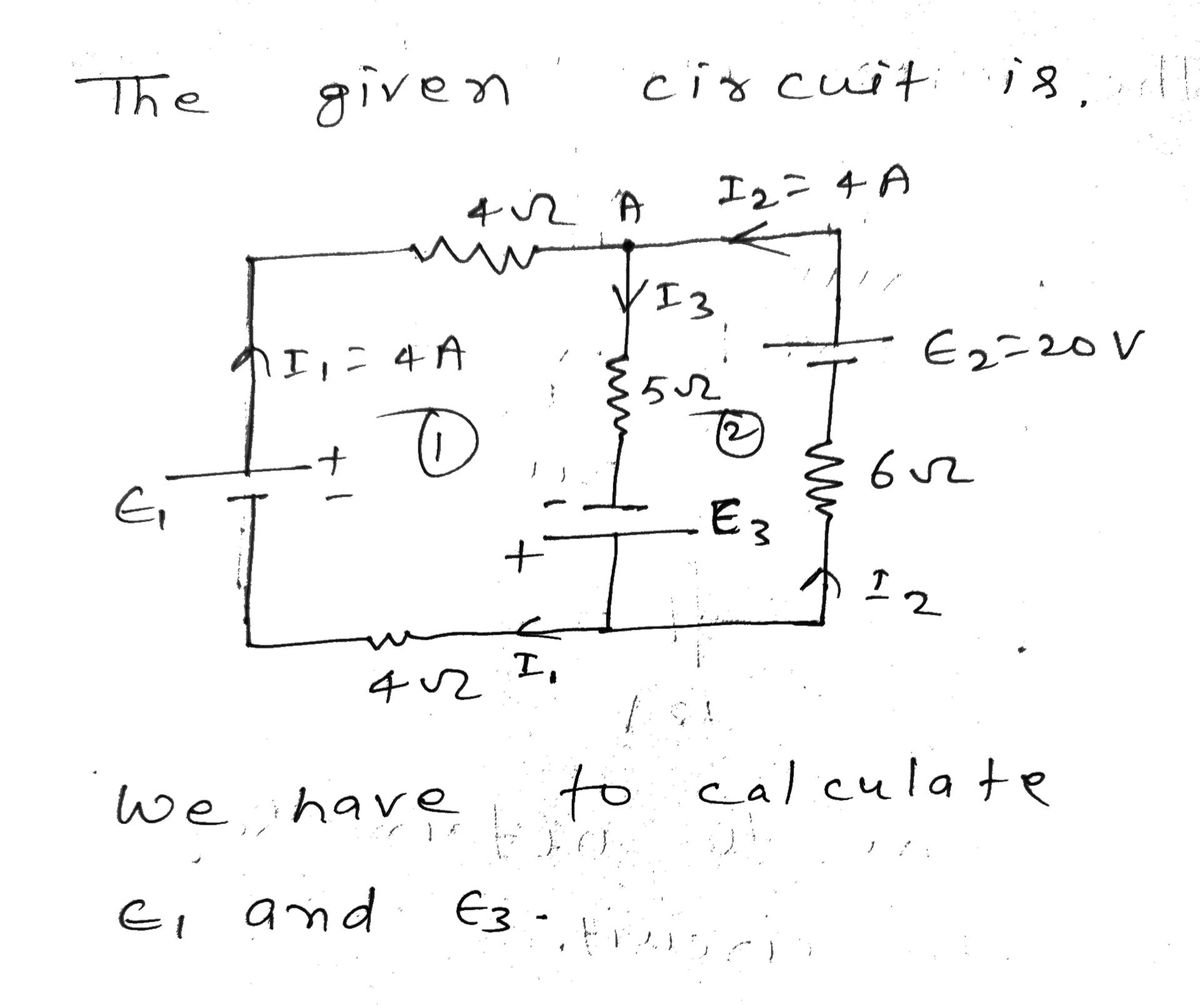 The given circuit is.
4Ω A I₂ = 4A
I₃
I₁ = 4A
5Ω
E₂ = 20V
① ②
+
-
E₁
6Ω
-
E₃
+
I₂
4Ω I₁
We have to calculate
E₁ and E₃.